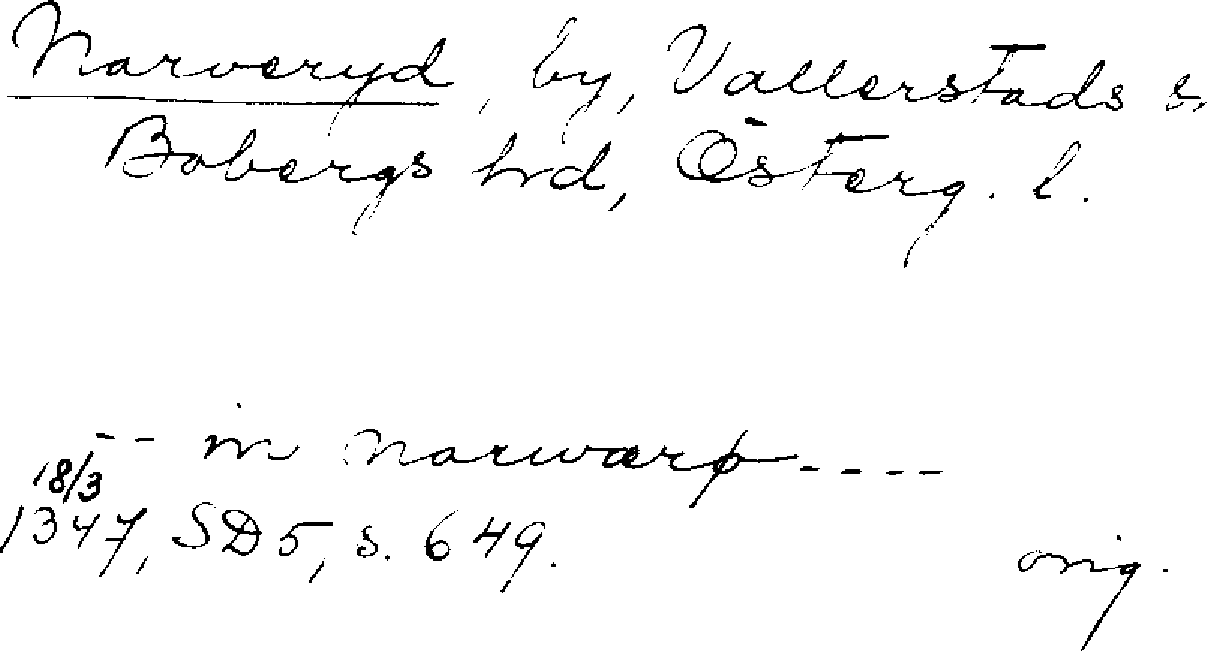 Narveryd, by, Vallerstads s.
Bobergs hrd, Österg. l.
-- in narwærþ ----
18/3
1347, SD 5, s. 649.
orig.